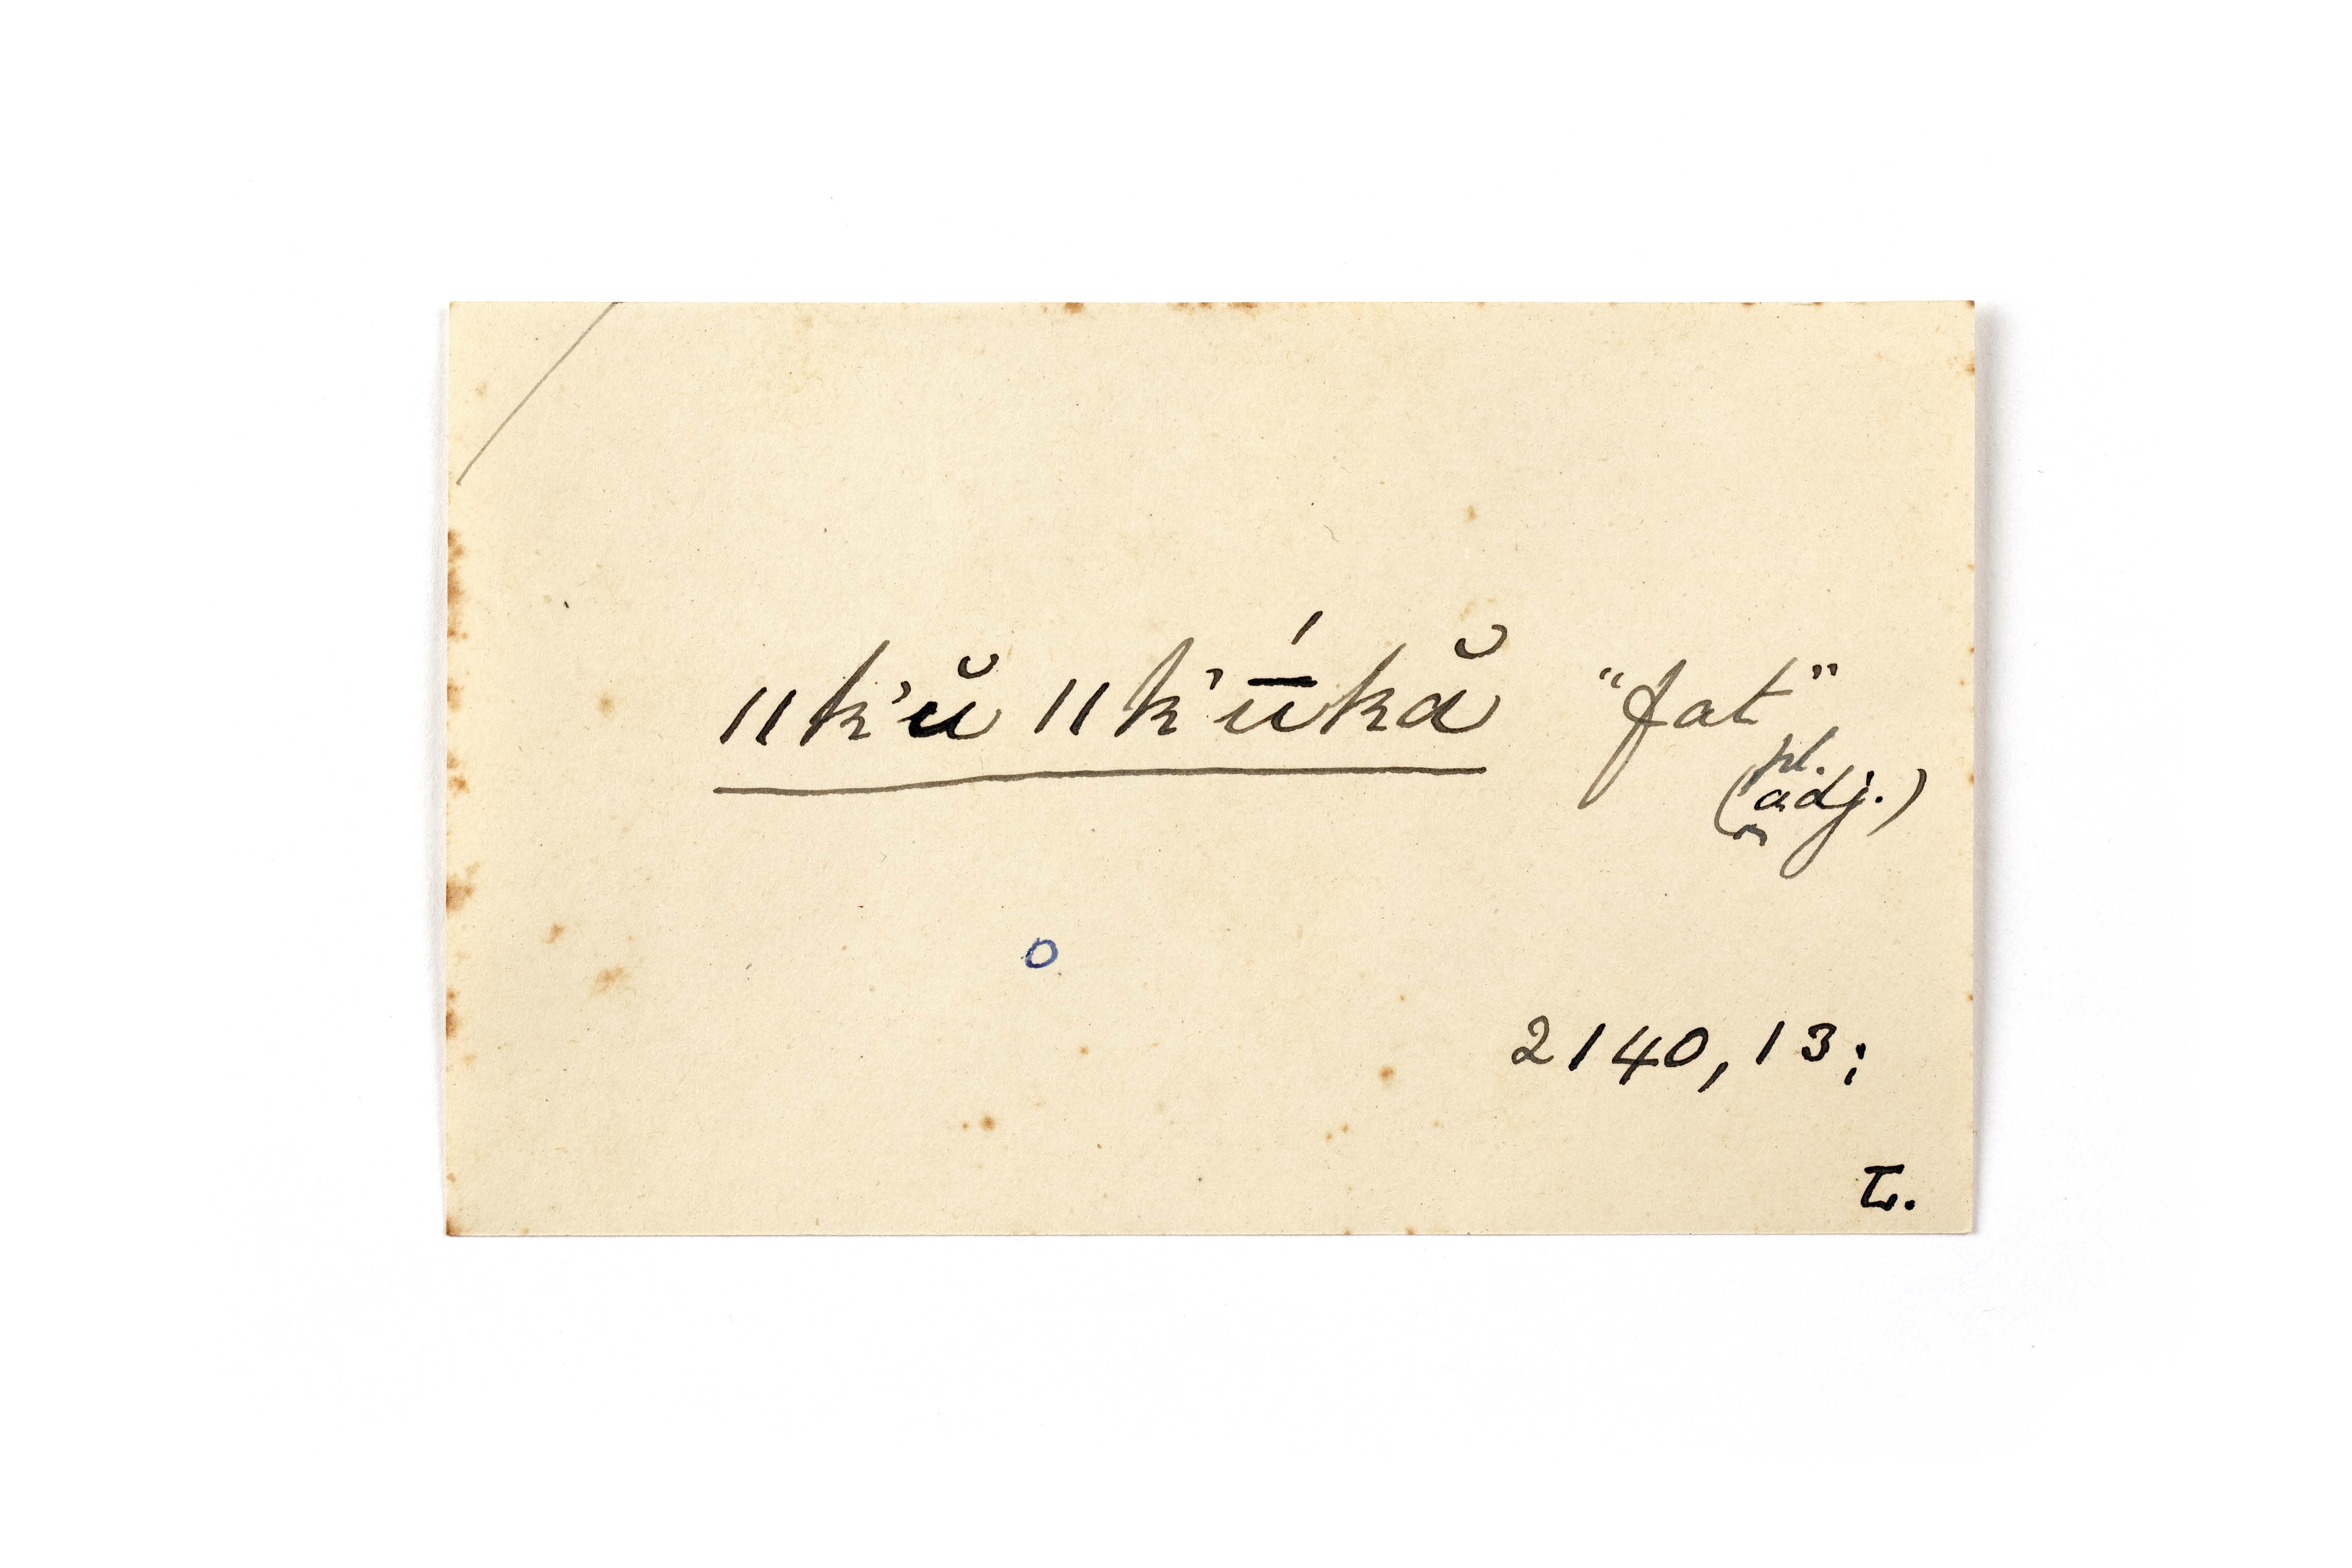 ǁk'ŭ ǁk'ū́kă "fat",
(pl. adj.)
o
2140,13;
L.